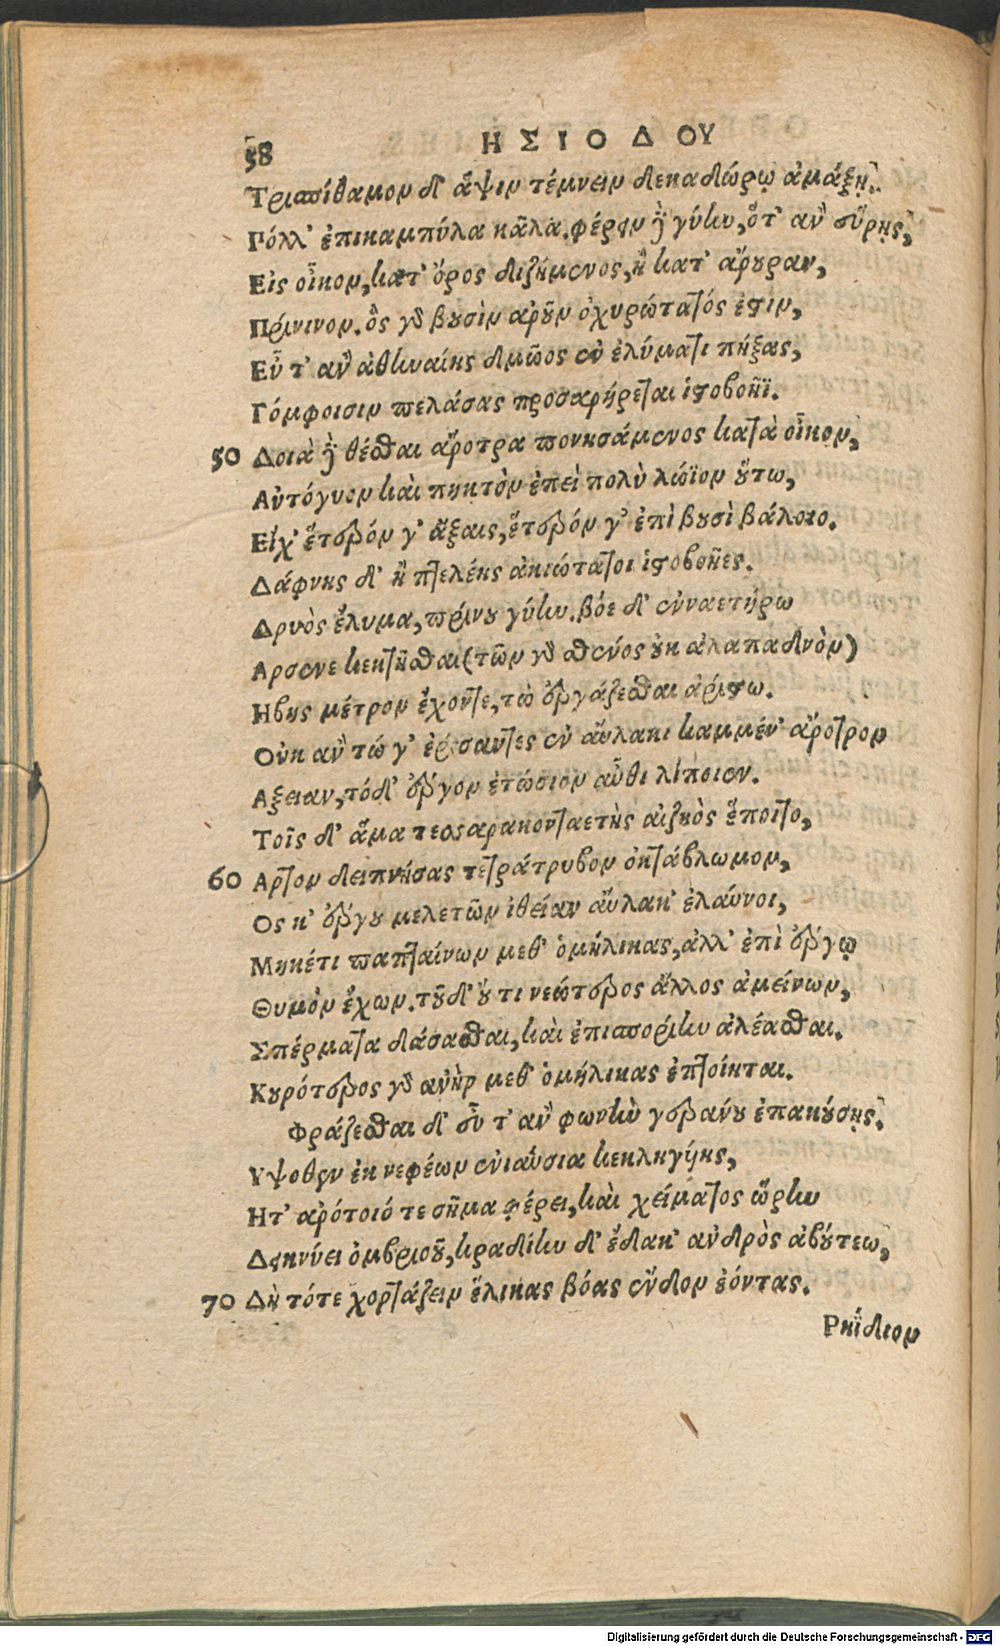 58
ΗΣΙΟΔΟΥ
Τριπίθαμον δ' ἅψιν τέμνειν δεκαδώρῳ ἁμάξῃ.
Πόλλ' ἐπικαμπύλα κᾶλα. φέρειν ἢ γύην, ὅτ' ἂν εὕρῃς,
Εἰς οἶκον, κατ' ὄρος διζήμενος, ἢ κατ' ἄρουραν,
Πρίνινον. ὃς γὸ βουσὶν ἀροῦν ὀχυρώτατός ἐστιν,
Εὖ τ' ἂν ἀθηναίης δμῶος ἐν ἐλύματι πήξας,
Γόμφοισιν πελάσας προσαρήρεται ἱστοβοῆϊ.
50 Δοιὰ ἢ θέσθαι ἄροτρα πονησάμενος κατὰ οἶκον,
Αὐτόγυον καὶ πηκτὸν ἐπεὶ πολὺ λώϊον οὕτω,
Εἴχ' ἕτερόν γ' ἄξαις, ἕτερόν γ' ἐπὶ βουσὶ βάλοιο.
Δάφνης δ' ἢ πτελέης ἀκιώτατοι ἱστοβοῆες.
Δρυὸς ἔλυμα, πρίνου γύην. βόε δ' ἐνναετήρω
Αρσενε κεκτῆσθαι (τῶν γὸ σθένος οὐκ ἀλαπαδνὸν)
Ηβης μέτρον ἔχοντε, τὼ ἐργάζεσθαι ἀρίστω.
Οὐκ ἂν τώ γ' ἐρίσαντες ἐν αὔλακι καμμέν' ἄροτρον
Αξειαν, τόδ' ἔργον ἐτώσιον αὖθι λίποιεν.
Τοῖς δ' ἅμα τεσσαρακονταετὴς αἰζηὸς ἕποιτο,
60 Αρτον δειπνήσας τετράτρυβον ὀκτάβλωμον,
Ος κ' ἔργου μελετῶν ἰθεῖαν αὔλακ' ἐλαύνοι,
Μηκέτι παπταίνων μεθ' ὁμήλικας, ἀλλ' ἐπὶ ἔργῳ
Θυμὸν ἔχων. τοῦδ' οὔ τι νεώτερος ἄλλος ἀμείνων,
Σπέρματα δάσασθαι, καὶ ἐπισπορίην ἀλέασθαι.
Κουρότερος γὸ ἀνὴρ μεθ' ὁμήλικας ἐπτοίηται.
Φράζεσθαι δ' εὖ τ' ἂν φωνὴν γεράνου ἐπακούσῃς,
Υψοθεν ἐκ νεφέων ἐνιαύσια κεκληγύης,
Ητ' ἀρότοιό τε σῆμα φέρει, καὶ χείματος ὥρην
Δεικνύει ὀμβριοῦ, κραδίην δ' ἔδακ' ἀνδρὸς ἀβούτεω,
70 Δὴ τότε χορτάζειν ἕλικας βόας ἔνδον ἐόντας.
Ρηΐδιον
Digitalisierung gefördert durch die Deutsche Forschungsgemeinschaft - DFG